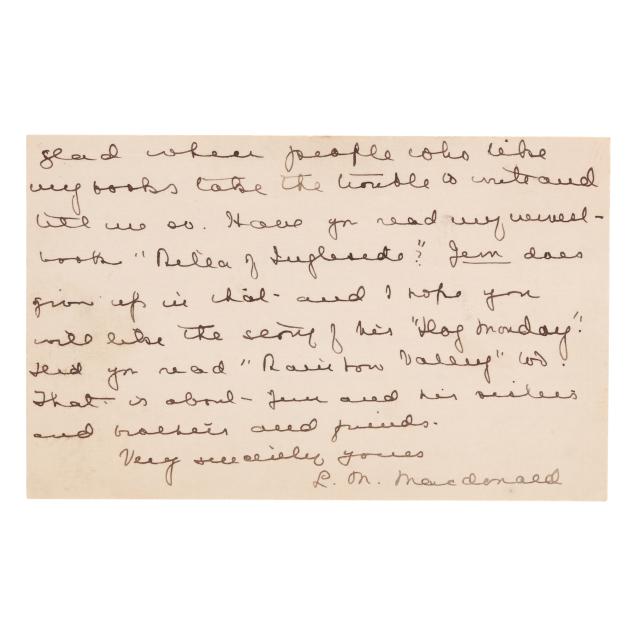 glad when people who like
my books take the trouble to write and
tell me so. Have you read my newest
book "Rilla of Ingleside"? Jem does
grow up in that and I hope you
will like the story of his "Dog Monday".
Did you read "Rainbow Valley" too?
That is about Jem and his sisters
and brothers and friends.
Very sincerely yours
L. M. Macdonald